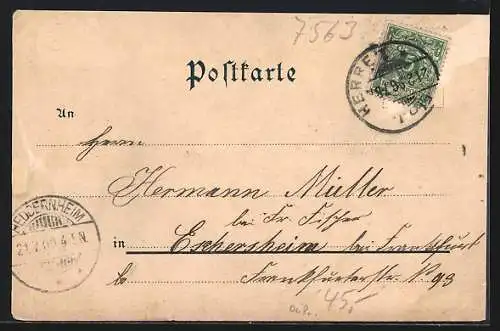 7563
Postkarte
HERRE
An
Herrn
Hermann Müller
bei Fr. Fischer
in Eschersheim bei Frankfurt
Frankfurterstr. No 93
HEDDERNHEIM
45,-